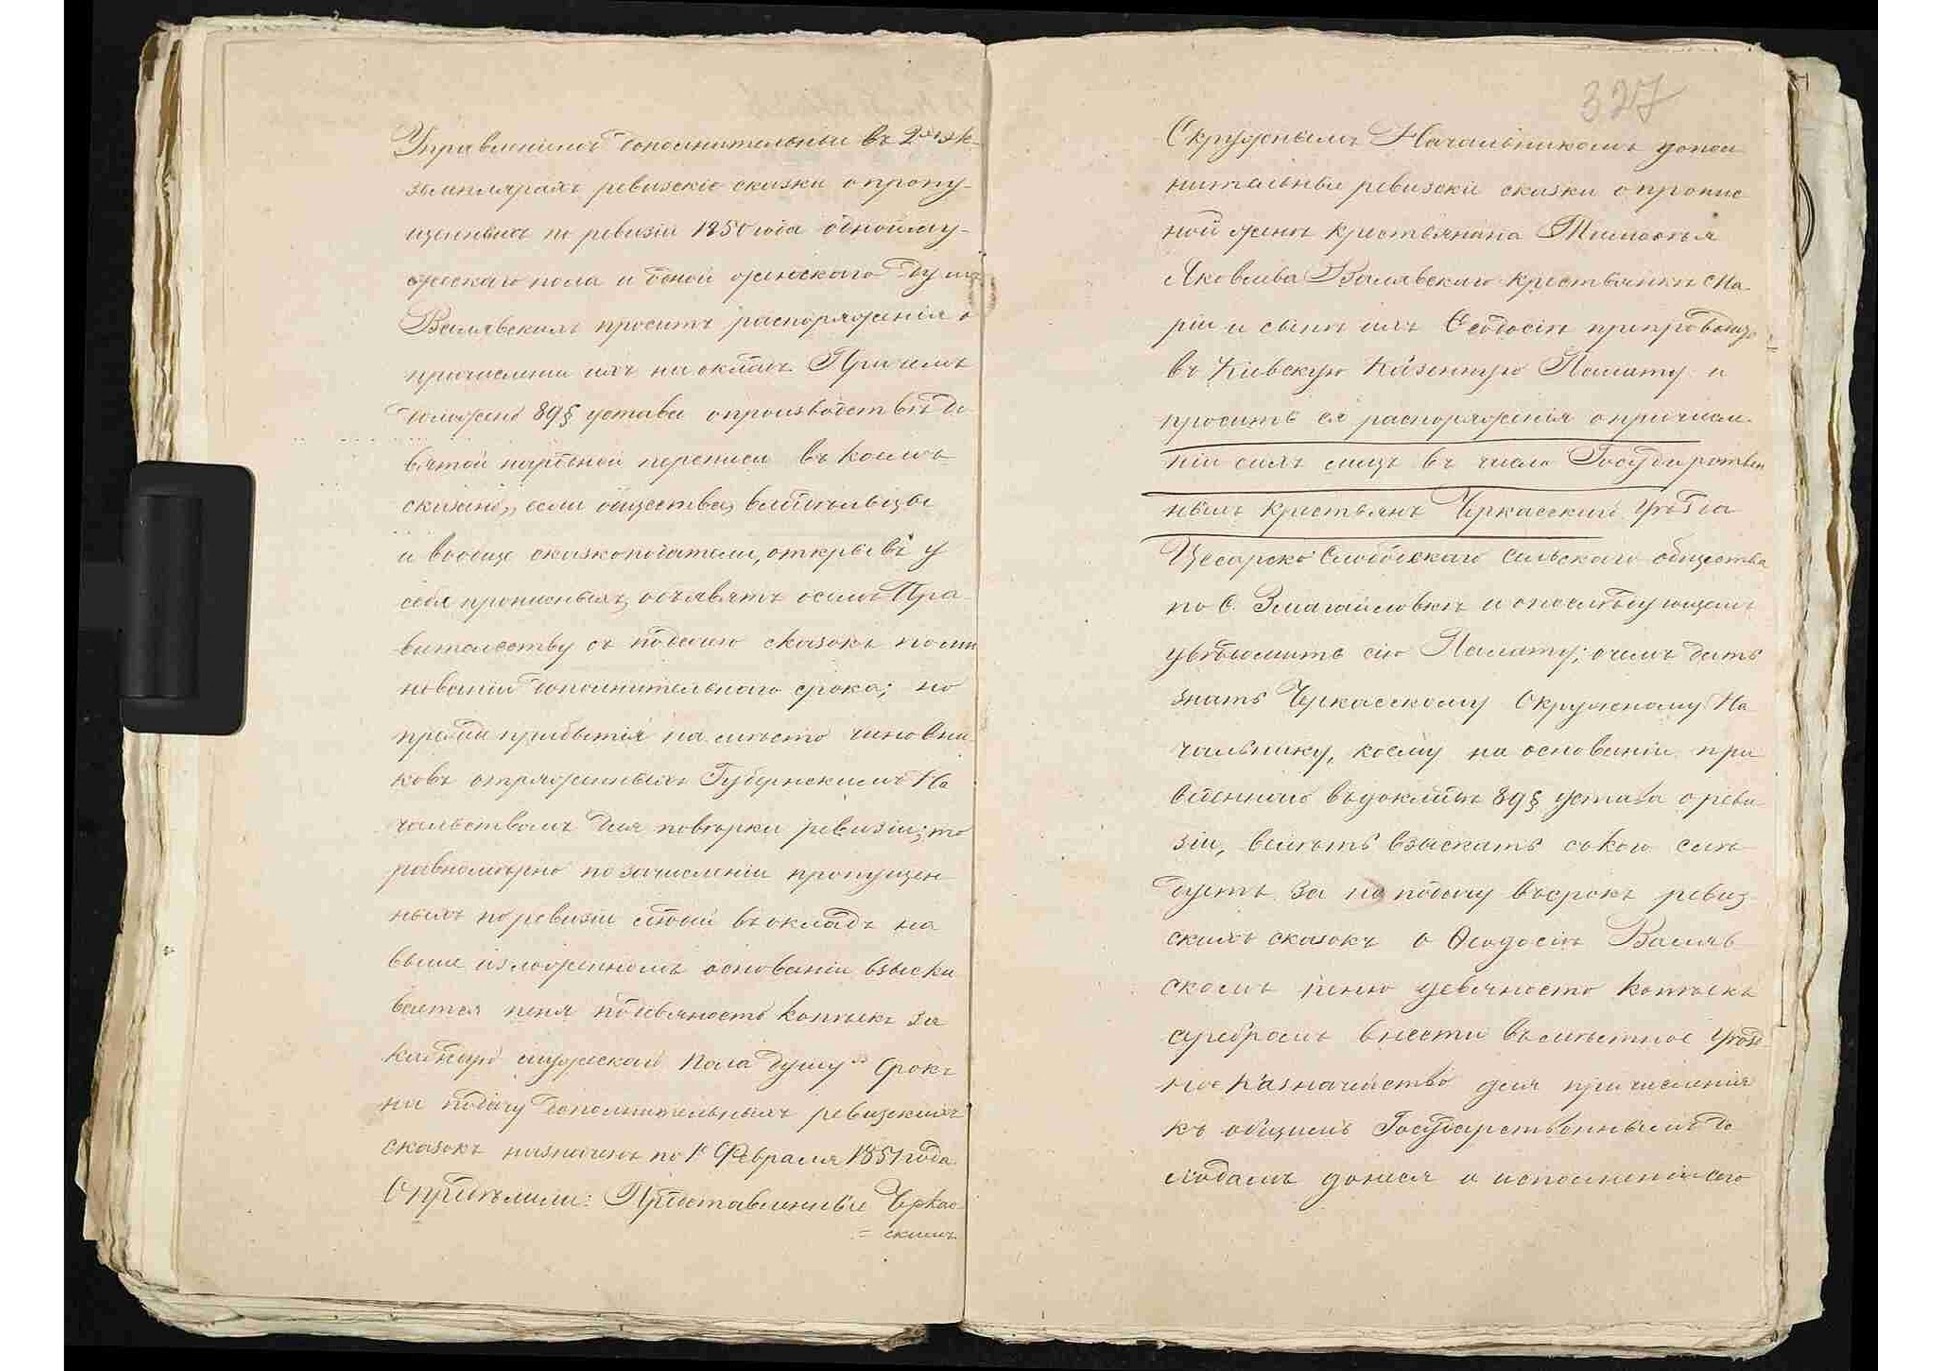 Управленіемъ дополнительныя въ 2хъ эк-
земплярахъ ревизскіе сказки о пропу-
щенныхъ по ревизіи 1850 года одной му-
жескаго пола и одной женскаго душъ
Валявскимъ проситъ распоряженія о
причисленіи ихъ на окладъ. Причемъ
доложено 89 § устава о производствѣ де
вятой народной переписи въ коемъ
сказано, если общества, владѣльцы
и вообще сказкоподатели, открывъ у
себя прописныхъ, объявятъ о семъ Пра-
вительству съ подачею сказокъ по ми
нованіи дополнительнаго срока; но
прежде прибытія на мѣсто чиновни
ковъ отряженныхъ Губернскимъ На
чальствомъ для повѣрки ревизіи; то
равномѣрно по зачисленіи пропущен
ныхъ по ревизіи людей въ окладъ на
выше изложенномъ основаніи взыски
вается пеня по девяность копѣекъ за
каждую мужескаго пола душу" Срокъ
на подачу дополнительныхъ ревизскихъ
сказокъ назначенъ по 1е Февраля 1851 года
Опредѣлили: Представленные Черкас-
= скимъ
327
Окружнымъ Начальникомъ допол
нительныя ревизскіе сказки о пропис
ной женѣ крестьянина Тимофея
Яковлева Валявскаго крестьянкѣ Ма-
ріи и сынѣ ихъ Ѳеодосіѣ препроводить
въ Кіевскую Казенную Палату и
просить ея распоряженія о причисле-
ніи сихъ лицъ въ число Государствен
ныхъ крестьянъ Черкасскаго Уѣзда
Цесарско Слободскаго сельскаго общества
по С. Змагайловкѣ и о послѣдующемъ
увѣдомить сію Палату; о чемъ дать
знать Черкасскому Окружному На
чальнику, коему на основаніи при
веденнаго въ докладѣ 89 § устава о реви-
зіи, велѣть взыскать съ кого слѣ
дуетъ за не подачу въ срокъ ревиз-
скихъ сказокъ о Ѳеодосіѣ Валяв
скомъ пеню девяносто копѣекъ
серебромъ внести въ мѣстное Уѣзд
ное Казначейство для причисленія
къ общимъ Государственнымъ до
ходамъ донеся о исполненіи сего